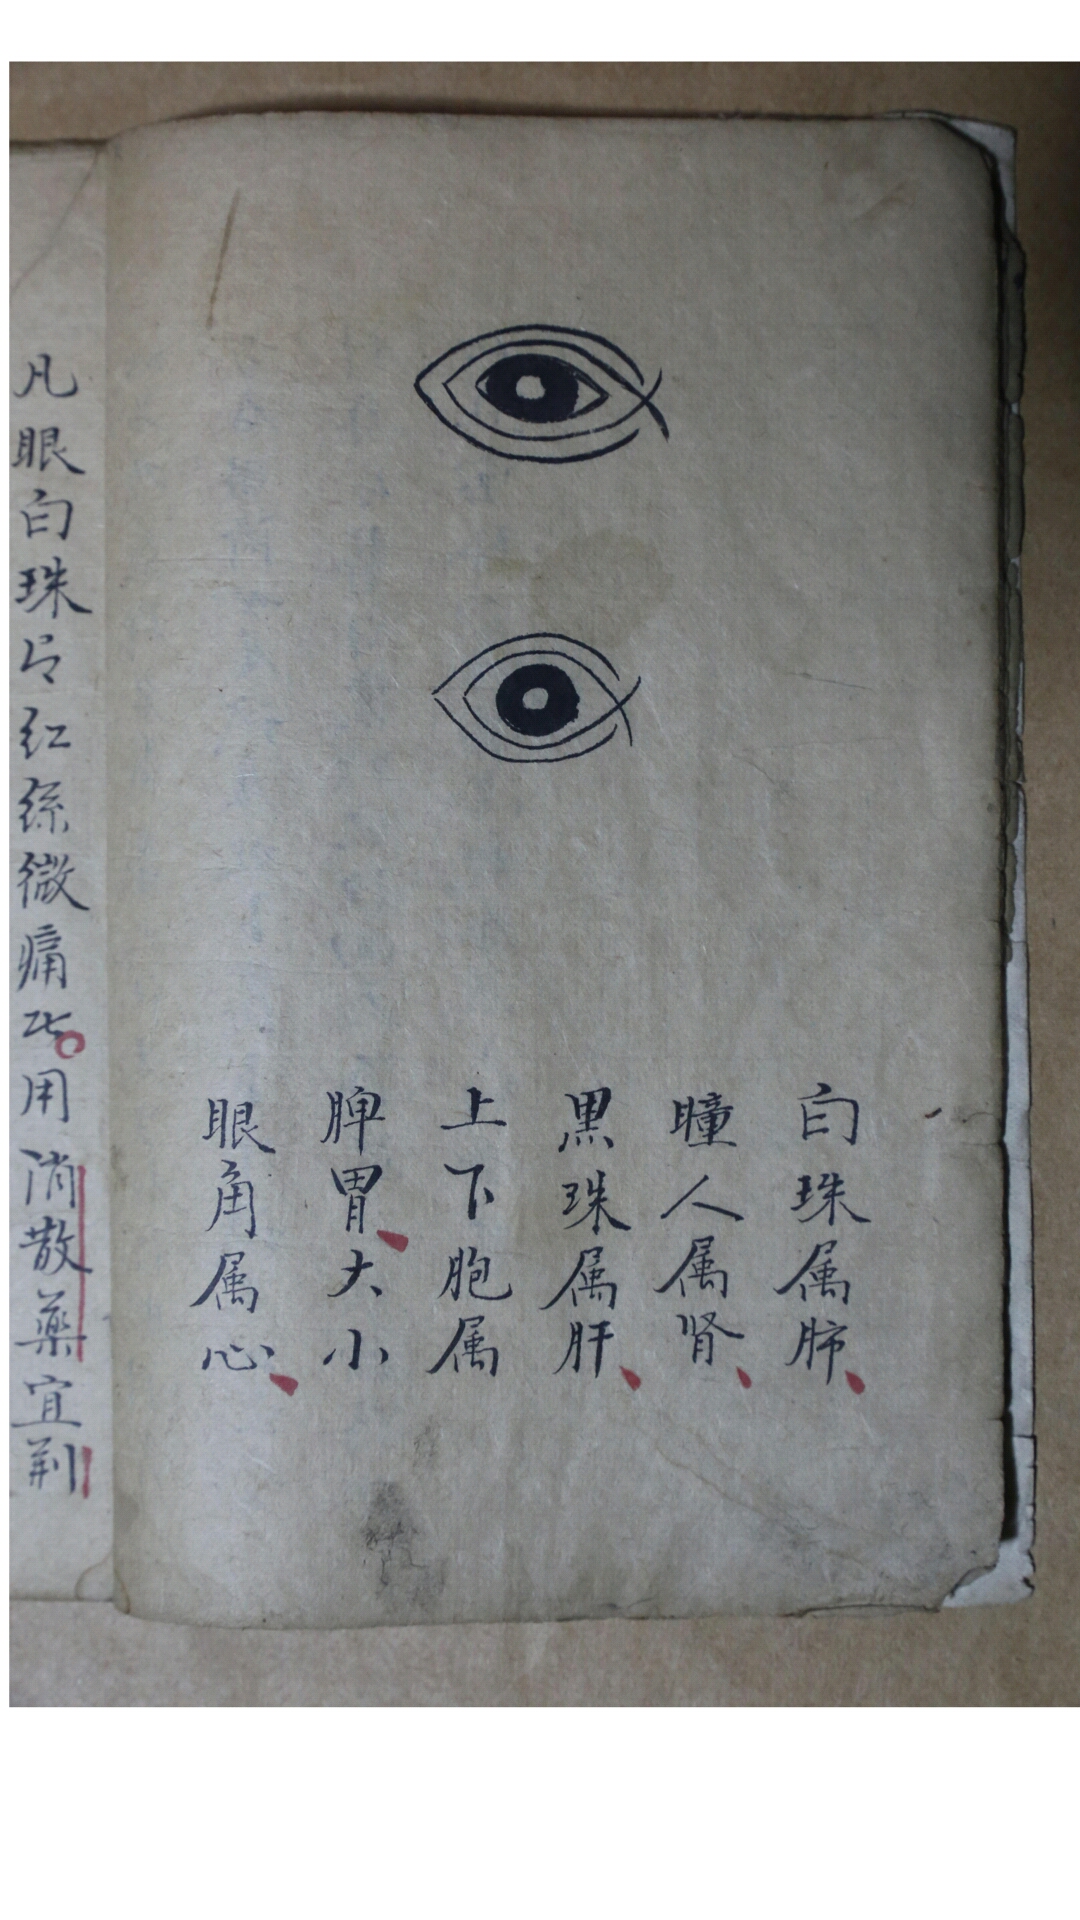 白珠属肺
瞳人属肾
黒珠属肝
上下胞属
脾胃大小
眼角属心
凡眼白珠有红絲微痛此用消散藥宜荆